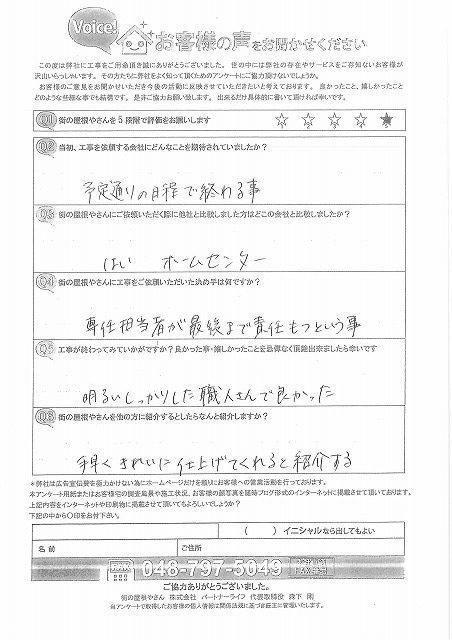 Voice!
お客様の声をお聞かせください
この度は弊社に工事をご用命頂き誠にありがとうございました。世の中には弊社の存在やサービスをご存知ないお客様が
沢山いらっしゃいます。その方たちに弊社をよく知って頂くためのアンケートにご協力頂けないでしょうか。
お客様のご意見をお聞かせいただき今後の活動に反映させていただきたいと考えております。良かったこと、嬉しかったこと
どのような些細な事でも結構です。是非ご協力お願い致します。出来るだけ具体的に書いて頂ければ幸いです。
Q1 街の屋根やさんを5段階で評価をお願いします ☆ ☆ ☆ ☆ ★
Q2 当初、工事を依頼する会社にどんなことを期待されていましたか?
予定通りの日程で終わる事
Q3 街の屋根やさんにご依頼いただく際に他社と比較しました方はどこの会社と比較しましたか?
はい ホームセンター
Q4 街の屋根やさんに工事をご依頼いただいた決め手は何ですか?
専任担当者が最終まで責任もつという事
Q5 工事が終わってみていかがですか?良かった事・嬉しかったことを忌憚なく頂戴出来ましたら幸いです
明るいしっかりした職人さんで良かった
Q6 街の屋根やさんを他の方に紹介するとしたらなんと紹介しますか?
手早くきれいに仕上げてくれると紹介する
*弊社は広告宣伝費を極力かけない為にホームページだけを頼りにお客様への営業活動を行っております。
本アンケート用紙またはお客様宅の調査風景や施工状況、お客様の顔写真を随時ブログ形式のインターネットに掲載させて頂いております。
上記内容をインターネットや印刷物に掲載させて頂いてもよろしいでしょうか?
下記の中から〇印をお付下さい。
( ) イニシャルなら出してもよい
名前 ご住所
048-797-5049
ご協力ありがとうございました。
街の屋根やさん 株式会社 パートナーライフ 代表取締役 森下 剛
当アンケートで取得したお客様の個人情報は関係法規に基づき厳正に管理いたします。